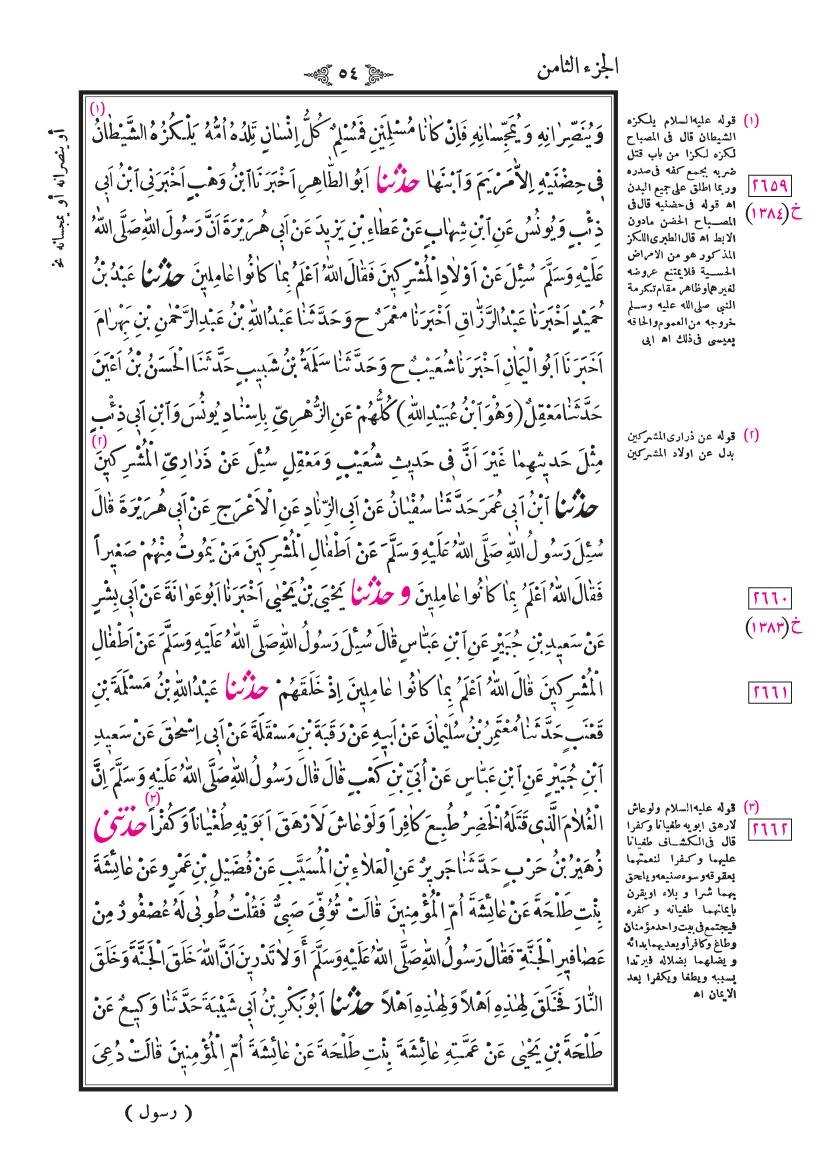 الجزء الثامن
٥٤
وَيُنَصِّرَانِهِ وَيُمَجِّسَانِهِ فَإِنْ كَانَا مُسْلِمَيْنِ فَمُسْلِمٌ كُلُّ إِنْسَانٍ تَلِدُهُ أُمُّهُ يَلْكُزُهُ الشَّيْطَانُ (١)
فِي حِضْنَيْهِ إِلَّا مَرْيَمَ وَابْنَهَا حَدَّثَنَا أَبُو الطَّاهِرِ أَخْبَرَنَا ابْنُ وَهْبٍ أَخْبَرَنِي ابْنُ أَبِي
ذِئْبٍ وَيُونُسُ عَنِ ابْنِ شِهَابٍ عَنْ عَطَاءِ بْنِ يَزِيدَ عَنْ أَبِي هُرَيْرَةَ أَنَّ رَسُولَ اللهِ صَلَّى اللهُ
عَلَيْهِ وَسَلَّمَ سُئِلَ عَنْ أَوْلَادِ الْمُشْرِكِينَ فَقَالَ اللهُ أَعْلَمُ بِمَا كَانُوا عَامِلِينَ حَدَّثَنَا عَبْدُ بْنُ
حُمَيْدٍ أَخْبَرَنَا عَبْدُ الرَّزَّاقِ أَخْبَرَنَا مَعْمَرٌ ح وَحَدَّثَنَا عَبْدُ اللهِ بْنُ عَبْدِ الرَّحْمٰنِ بْنِ بَهْرَامَ
أَخْبَرَنَا أَبُو الْيَمَانِ أَخْبَرَنَا شُعَيْبٌ ح وَحَدَّثَنَا سَلَمَةُ بْنُ شَبِيبٍ حَدَّثَنَا الْحَسَنُ بْنُ أَعْيَنَ
حَدَّثَنَا مَعْقِلٌ (وَهُوَ ابْنُ عُبَيْدِ اللهِ) كُلُّهُمْ عَنِ الزُّهْرِيِّ بِإِسْنَادِ يُونُسَ وَابْنِ أَبِي ذِئْبٍ
مِثْلَ حَدِيثِهِمَا غَيْرَ أَنَّ فِي حَدِيثِ شُعَيْبٍ وَمَعْقِلٍ سُئِلَ عَنْ ذَرَارِيِّ الْمُشْرِكِينَ (٢)
حَدَّثَنَا ابْنُ أَبِي عُمَرَ حَدَّثَنَا سُفْيَانُ عَنْ أَبِي الزِّنَادِ عَنِ الْأَعْرَجِ عَنْ أَبِي هُرَيْرَةَ قَالَ
سُئِلَ رَسُولُ اللهِ صَلَّى اللهُ عَلَيْهِ وَسَلَّمَ عَنْ أَطْفَالِ الْمُشْرِكِينَ مَنْ يَمُوتُ مِنْهُمْ صَغِيراً
فَقَالَ اللهُ أَعْلَمُ بِمَا كَانُوا عَامِلِينَ وَحَدَّثَنَا يَحْيَى بْنُ يَحْيَى أَخْبَرَنَا أَبُو عَوَانَةَ عَنْ أَبِي بِشْرٍ
عَنْ سَعِيدِ بْنِ جُبَيْرٍ عَنِ ابْنِ عَبَّاسٍ قَالَ سُئِلَ رَسُولُ اللهِ صَلَّى اللهُ عَلَيْهِ وَسَلَّمَ عَنْ أَطْفَالِ
الْمُشْرِكِينَ قَالَ اللهُ أَعْلَمُ بِمَا كَانُوا عَامِلِينَ إِذْ خَلَقَهُمْ حَدَّثَنَا عَبْدُ اللهِ بْنُ مَسْلَمَةَ بْنِ
قَعْنَبٍ حَدَّثَنَا مُعْتَمِرُ بْنُ سُلَيْمَانَ عَنْ أَبِيهِ عَنْ رَقَبَةَ بْنِ مَسْقَلَةَ عَنْ أَبِي إِسْحٰقَ عَنْ سَعِيدِ
ابْنِ جُبَيْرٍ عَنِ ابْنِ عَبَّاسٍ عَنْ أُبَيِّ بْنِ كَعْبٍ قَالَ قَالَ رَسُولُ اللهِ صَلَّى اللهُ عَلَيْهِ وَسَلَّمَ إِنَّ
الْغُلَامَ الَّذِي قَتَلَهُ الْخَضِرُ طُبِعَ كَافِراً وَلَوْ عَاشَ لَأَرْهَقَ أَبَوَيْهِ طُغْيَاناً وَكُفْراً (٣) حَدَّثَنِي
زُهَيْرُ بْنُ حَرْبٍ حَدَّثَنَا جَرِيرٌ عَنِ الْعَلَاءِ بْنِ الْمُسَيَّبِ عَنْ فُضَيْلِ بْنِ عَمْرٍو عَنْ عَائِشَةَ
بِنْتِ طَلْحَةَ عَنْ عَائِشَةَ أُمِّ الْمُؤْمِنِينَ قَالَتْ تُوُفِّيَ صَبِيٌّ فَقُلْتُ طُوبَى لَهُ عُصْفُورٌ مِنْ
عَصَافِيرِ الْجَنَّةِ فَقَالَ رَسُولُ اللهِ صَلَّى اللهُ عَلَيْهِ وَسَلَّمَ أَوَلَا تَدْرِينَ أَنَّ اللهَ خَلَقَ الْجَنَّةَ وَخَلَقَ
النَّارَ فَخَلَقَ لِهٰذِهِ أَهْلاً وَلِهٰذِهِ أَهْلاً حَدَّثَنَا أَبُو بَكْرِ بْنُ أَبِي شَيْبَةَ حَدَّثَنَا وَكِيعٌ عَنْ
طَلْحَةَ بْنِ يَحْيَى عَنْ عَمَّتِهِ عَائِشَةَ بِنْتِ طَلْحَةَ عَنْ عَائِشَةَ أُمِّ الْمُؤْمِنِينَ قَالَتْ دُعِيَ
( رسول )
(١) قوله عليه السلام يلكزه
الشيطان قال فى المصباح
لكزه لكزا من باب قتل
ضربه بجمع كفه فى صدره
وربما اطلق على جميع البدن
اه قوله فى حضنيه قال فى
المصباح الحضن مادون
الابط اه قال الطيرى اللكز
المذكور هو من الامراض
الحسية فلا يمتنع عروضه
لغيرهما وظاهر مقام تكرمة
النبى صلى الله عليه وسلم
خروجه من العموم والحاقه
بعيسى فى ذلك اه ابى
٢٦٥٩
خ (١٣٨٤)
(٢) قوله عن ذرارى المشركين
بدل عن اولاد المشركين
٢٦٦٠
خ (١٣٨٣)
٢٦٦١
(٣) قوله عليه السلام ولو عاش
لارهق ابويه طغيانا وكفرا
قال فى الكشاف طغيانا
عليهما وكفرا لنعمتهما
بعقوقه وسوء صنيعه ويلحق
بهما شرا و بلاء اويقرن
بايمانهما طغيانه و كفره
فيجتمع فى بيت واحد مؤمنان
وطاغ وكافر أو يعديهما بدائه
و يضلهما بضلاله فيرتدا
بسببه ويطغا ويكفرا بعد
الايمان اه
٢٦٦٢
أو ينصرانه أو يمجسانه نخ